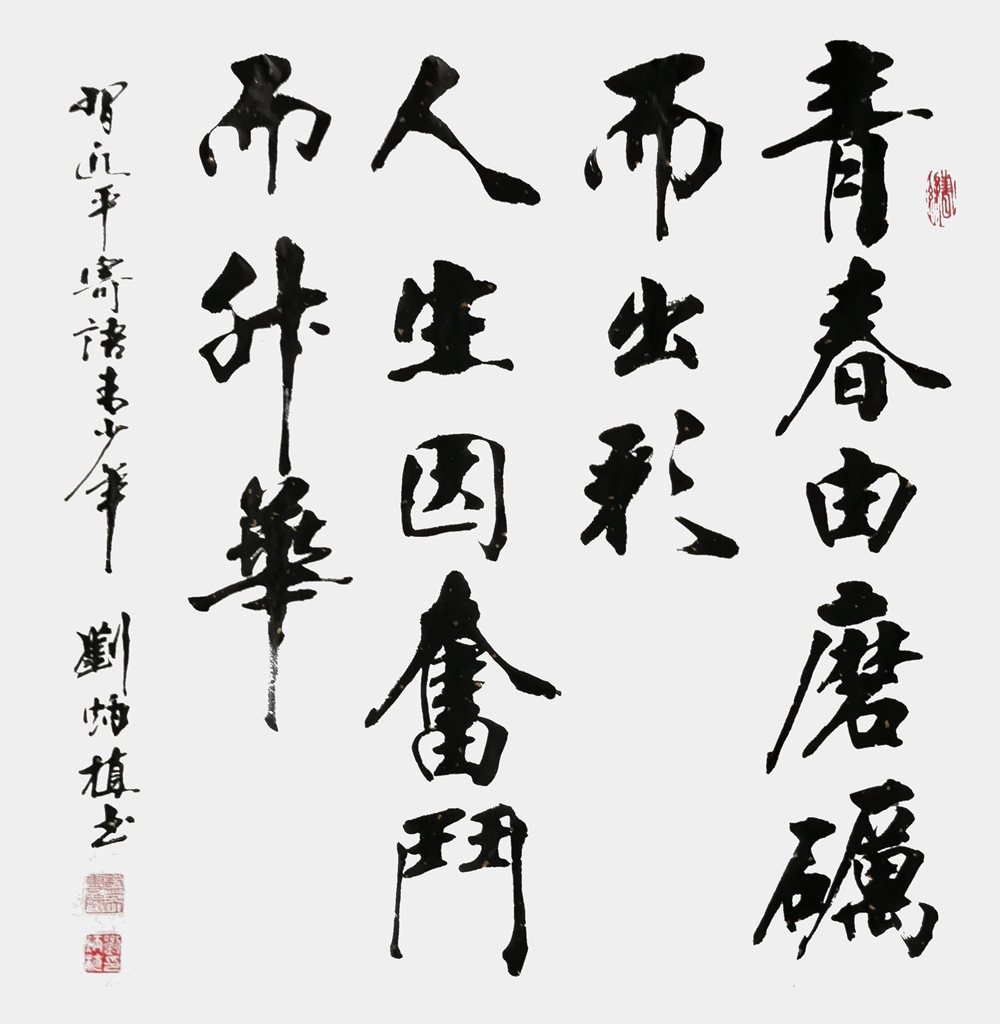 青春由磨礪
而出彩
人生因奮鬥
而升華
習近平寄語青少年 劉炳植书